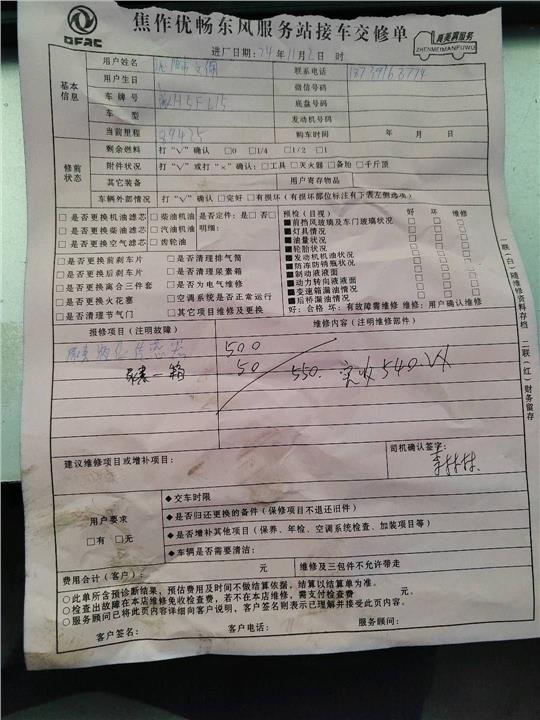 DFAC
焦作优畅东风服务站接车交修单
真美满服务
ZHENMEIMANFUWU
进厂日期：24 年 11 月 2 日 时
基本信息
用户姓名 联系电话
用户生日 微信号码
车牌号 底盘号码
车型 发动机号码
当前里程 29425 购车时间 年 月 日
修前状态
剩余燃料 打“√”确认 □0 □1/4 □1/2 □1
附件状况 打“√”或打“×”确认：□工具 □灭火器 □备胎 □千斤顶
其它装备 用户寄存物品
车辆外部情况 打“√”确认 □完好 □有损坏（有损坏部位标注有下表左侧选项）
□是否更换机油滤芯 □柴油机油 是否定件：是□否□
□是否更换柴油滤芯 □汽油机油 明细：
□是否更换空气滤芯 □齿轮油
□是否更换前刹车片 □是否清理排气筒
□是否更换后刹车片 □是否清理尿素箱
□是否更换离合三件套 □是否为电气维修
□是否更换火花塞 □空调系统是否正常运行
□是否清理节气门 □其它项目维修及更换
预检（目视） 好 坏 维修
■前档风玻璃及车门玻璃状况
■灯具情况
■油量状况
■轮胎状况
■发动机机油状况
■防冻防锈瓶状况
■制动液液面
■动力转向液液面
■变速箱漏油情况
■后桥漏油情况
好：合格 坏：有故障需维修 维修：用户确认维修
报修项目（注明故障） 维修内容（注明维修部件）
500
尿素一箱 50 550. 实收 540.
建议维修项目或增补项目：
司机确认签字：
用户要求
□有 □无
◆交车时限
◆是否归还更换的备件（保修项目不退还旧件）
◆是否增补其他项目（保养、年检、空调系统检查、加装项目等）
◆车辆是否需要清洁：
费用合计（客户）： 元 维修及三包件不允许带走
○此单所含预诊断结果，预估费用及时间不做结算依据，结算以结算单为准。
○检查出故障在本店维修免收检查费，若不在本店维修，需支付检查费 元。
○服务顾问已将此页内容详细向客户说明，客户签名则表示已理解并接受此页内容。
客户签名： 客户电话： 服务顾问：
一联（白）随维修资料存档 二联（红）财务留存